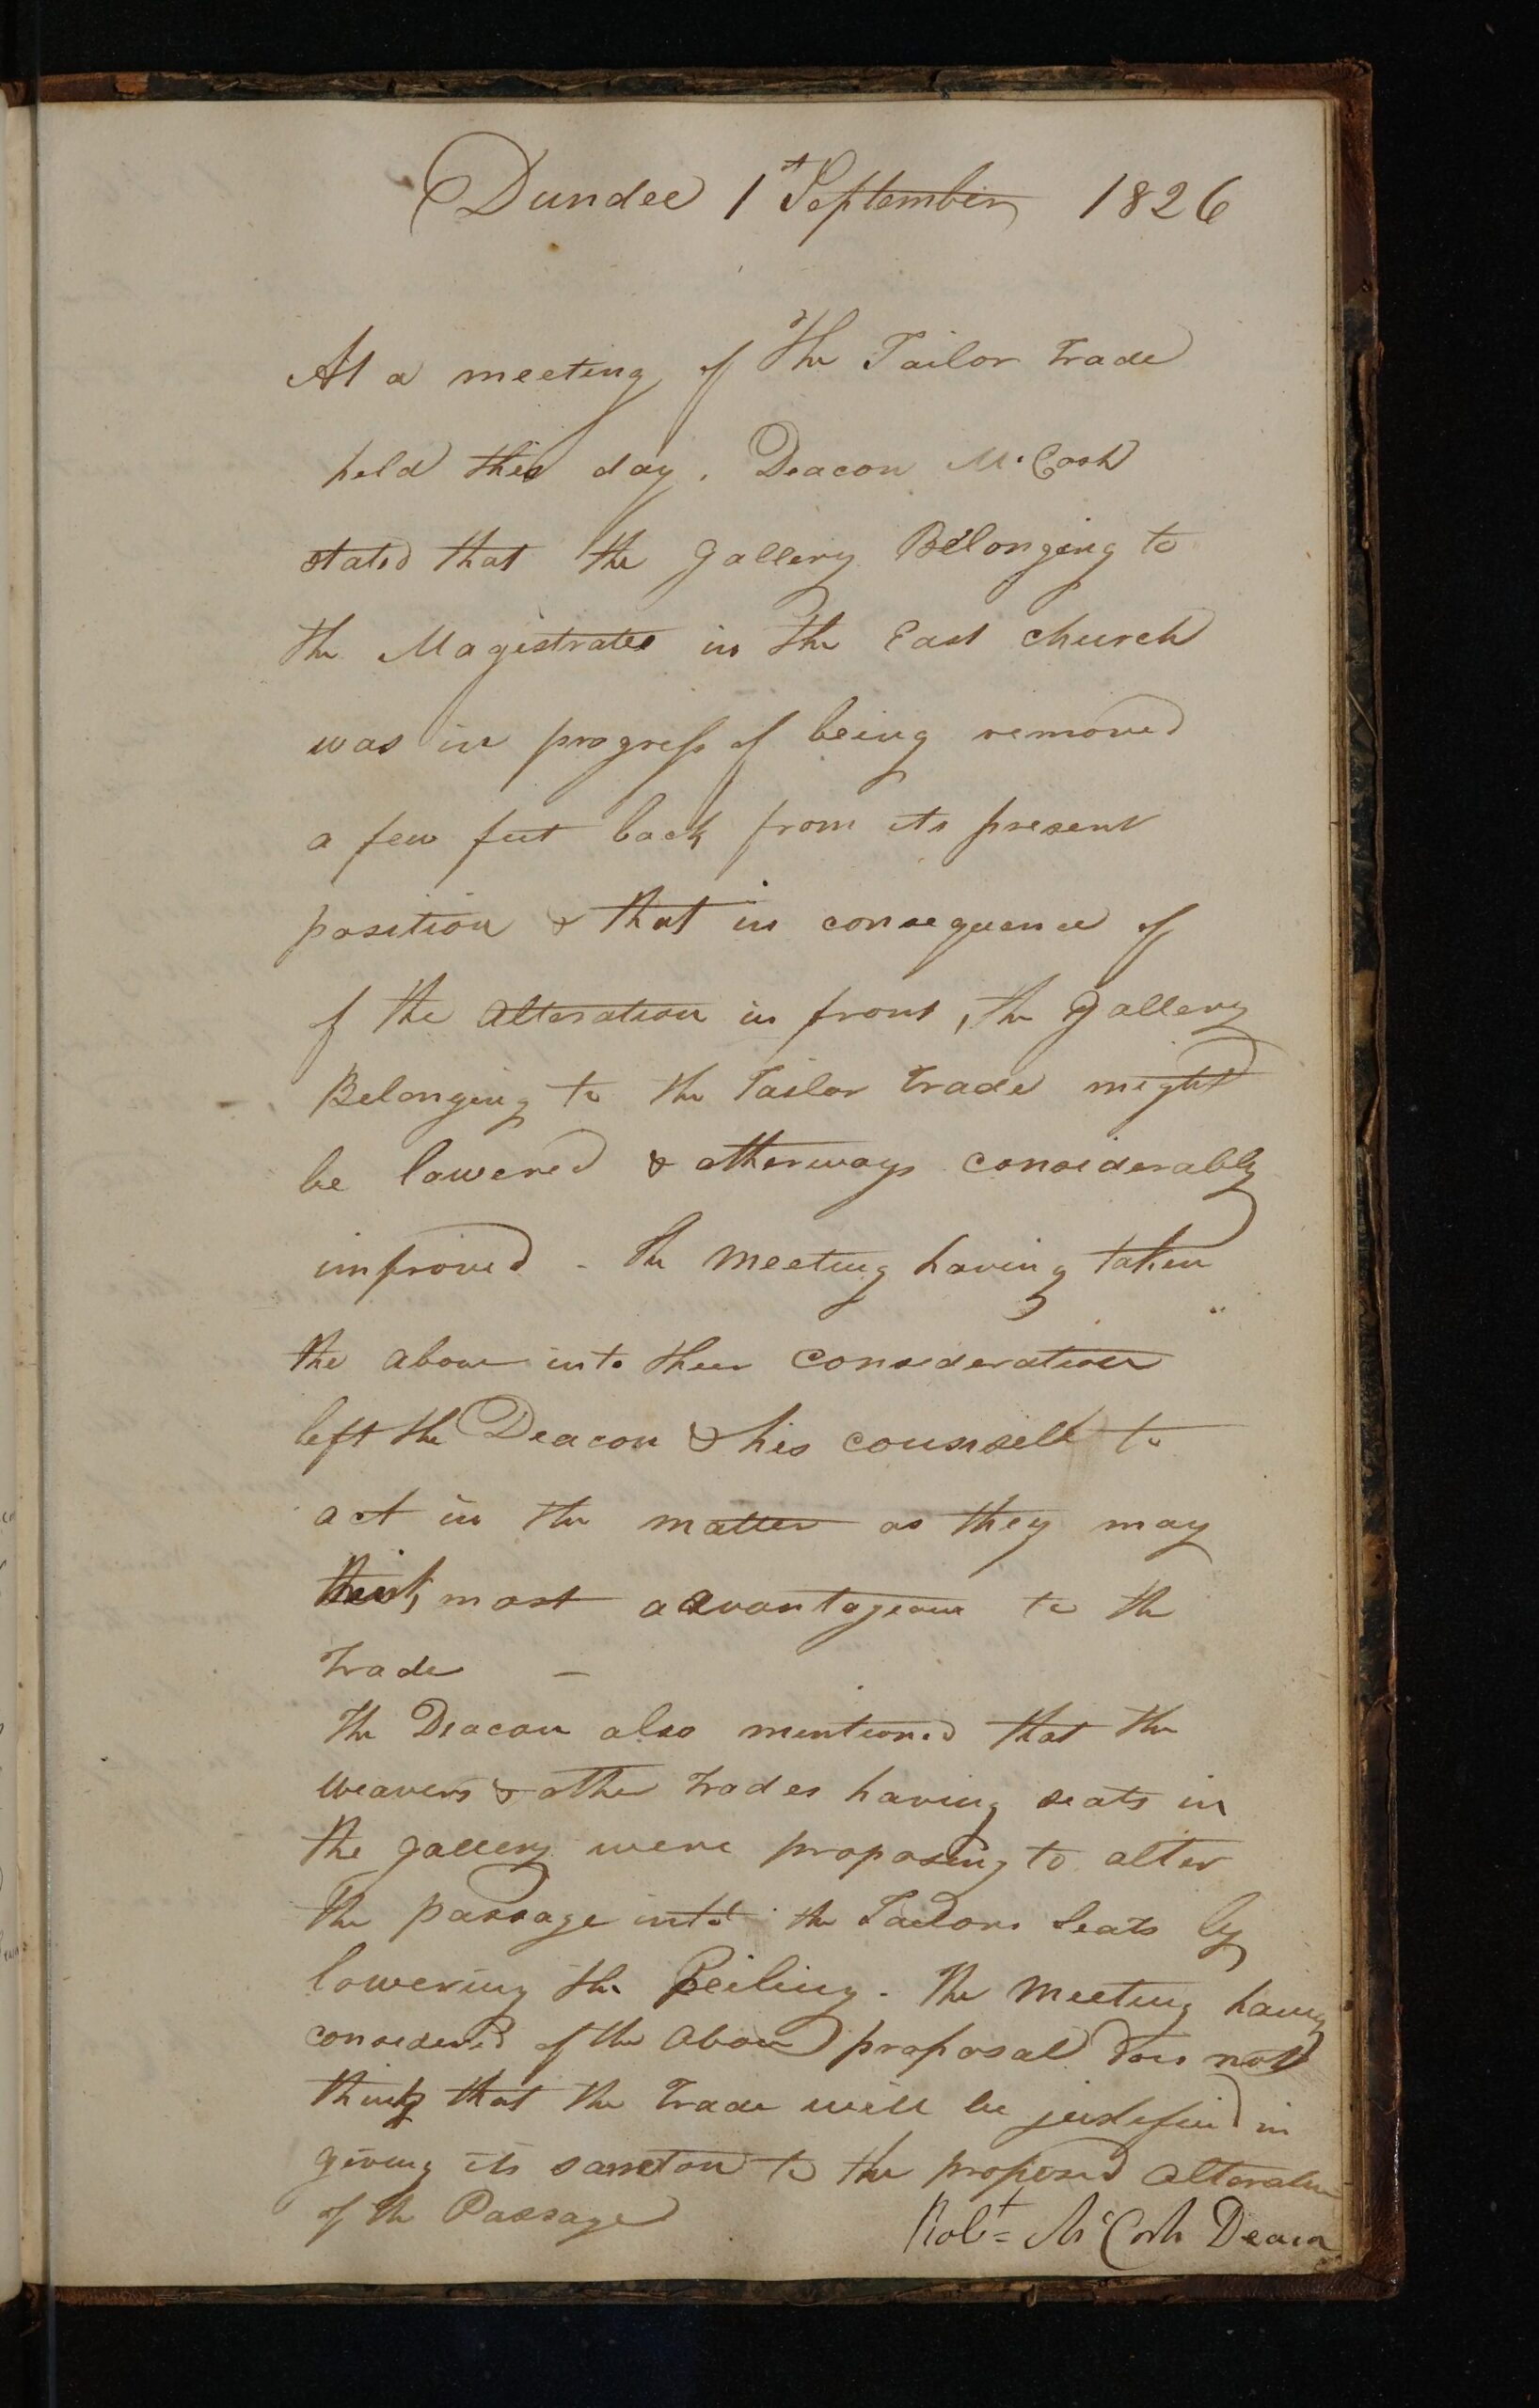 Dundee 1st September 1826
At a meeting of the Tailor Trade
held this day. Deacon McCosh
stated that the Gallery Belonging to
the Magistrates in the East Church
was in progress of being removed
a few feet back from its present
position & that in consequence of
of the alteration in front, the Gallery
Belonging to the Tailor Trade might
be lowered & otherways considerably
improved - the Meeting having taken
the above into their consideration
left the Deacon & his counsell to
act in the matter as they may
think most advantageous to the
Trade -
The Deacon also mentioned that the
Weavers & other Trades having seats in
the gallery were proposing to alter
the passage into the Tailors Seats by
lowering the Ceiling - The Meeting having
considered of the above proposal does not
think that the Trade will be justified in
giving its sanction to the proposed alteration
of the Passage
Robt McCosh Deacon